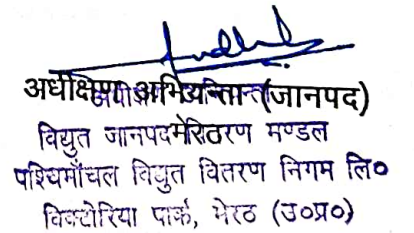 अधीक्षण अभियन्ता (जानपद)
विद्युत जानपद वितरण मण्डल
पश्चिमाँचल विद्युत वितरण निगम लि०
विक्टोरिया पार्क, मेरठ (उ०प्र०)